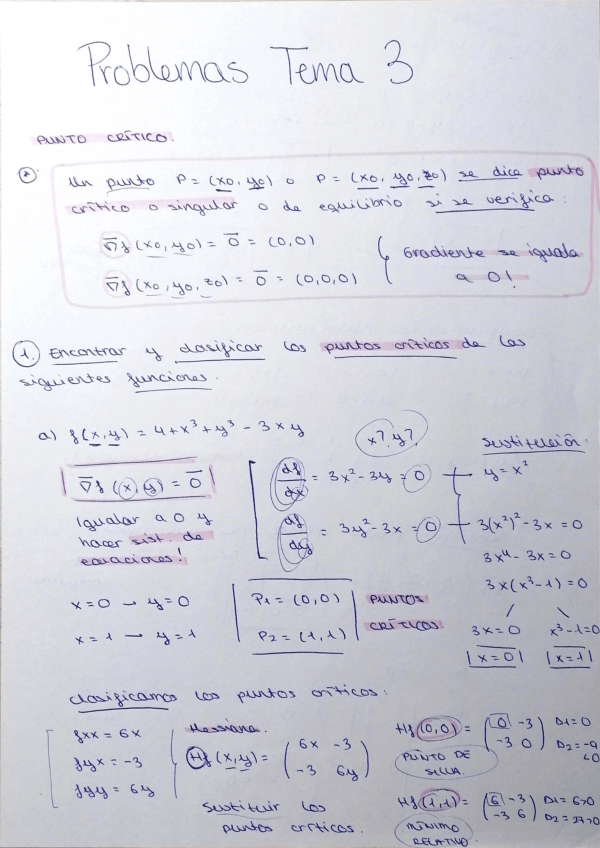 Problemas Tema 3
PUNTO CRÍTICO.
* Un punto P = (x0, y0) o P = (x0, y0, z0) se dice punto
crítico o singular o de equilibrio si se verifica:
∇f (x0, y0) = 0 = (0,0)
∇f (x0, y0, z0) = 0 = (0,0,0)
Gradiente se iguala
a 0!
1. Encontrar y clasificar los puntos críticos de las
siguientes funciones.
a) f(x,y) = 4+x³+y³ - 3xy
x?, y?
∇f (x,y) = 0
Igualar a 0 y
hacer sist. de
ecuaciones!
df/dx = 3x² - 3y = 0
df/dy = 3y² - 3x = 0
sustitución:
y = x²
3(x²)² - 3x = 0
3x⁴ - 3x = 0
3x(x³-1) = 0
3x = 0 x³-1 = 0
x = 0 x = 1
x=0 → y=0
x=1 → y=1
P1 = (0,0)
P2 = (1,1)
PUNTOS
CRÍTICOS
Clasificamos los puntos críticos:
fxx = 6x
fyx = -3
fyy = 6y
Hessiana.
Hf (x,y) = (6x -3
-3 6y)
sustituir los
puntos críticos.
Hf (0,0) = (0 -3
-3 0) D1=0
D2=-9
<0
PUNTO DE
SILLA.
Hf (1,1) = (6 -3
-3 6) D1=6>0
D2=27>0
MÍNIMO
RELATIVO.